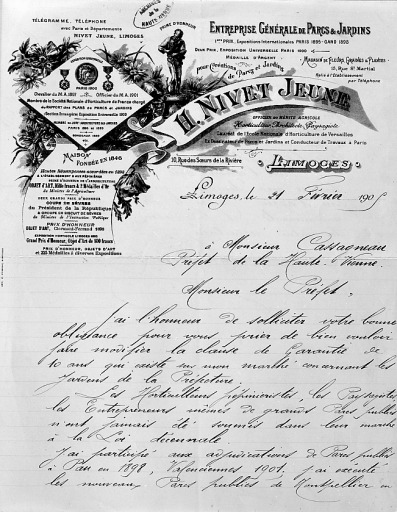 TÉLÉGRAMME, TÉLÉPHONE
avec Parcs et Départements
NIVET JEUNE, LIMOGES
PRIME D'HONNEUR
ENTREPRISE GÉNÉRALE DE PARCS & JARDINS
DEUX PRIX, EXPOSITION UNIVERSELLE PARIS 1900
MÉDAILLE D'ARGENT
pour Créations de Parcs et Jardins
MAGASIN DE FLEURS, GRAINES & FLEURS
Relié à l'Établissement
par Téléphone
Chevalier du M.A. 1897
Officier du M.A. 1901
H. NIVET JEUNE
OFFICIER DU MÉRITE AGRICOLE
Horticulteur Architecte Paysagiste
Lauréat de l'École Nationale d'Horticulture de Versailles
Ex Dessinateur de Parcs et Jardins et Conducteur de Travaux à Paris
10, Rue des Sœurs de la Rivière
LIMOGES
MAISON
FONDÉE EN 1846
OBJET D'ART
du Ministre de l'Agriculture
DEUX GRANDS PRIX D'HONNEUR
COUPE DE SÈVRES
du Président de la République
& GROUPE EN BISCUIT DE SÈVRES
du Ministre de l'Instruction Publique
PRIX D'HONNEUR
OBJET D'ART
PRIX D'HONNEUR, OBJETS D'ART
et 225 Médailles à diverses Expositions
Limoges, le 21 Février 190
à Monsieur Cassagneau
Préfet de la Haute Vienne
Monsieur le Préfet,
J'ai l'honneur de solliciter votre bonne
obligeance pour vous prier de bien vouloir
faire modifier la clause de Garantie de
10 ans qui existe sur mon marché concernant les
Jardins de la Préfecture.
Les Horticulteurs pépiniéristes, les Paysagistes,
les Entrepreneurs mêmes de grands Parcs publics
n'ont jamais été soumis dans leur marché
à la Loi décennale.
J'ai participé aux adjudications de Parcs publics
à Pau en 1898, Valenciennes 1901, j'ai exécuté
les nouveaux Parcs publics de Montpellier en